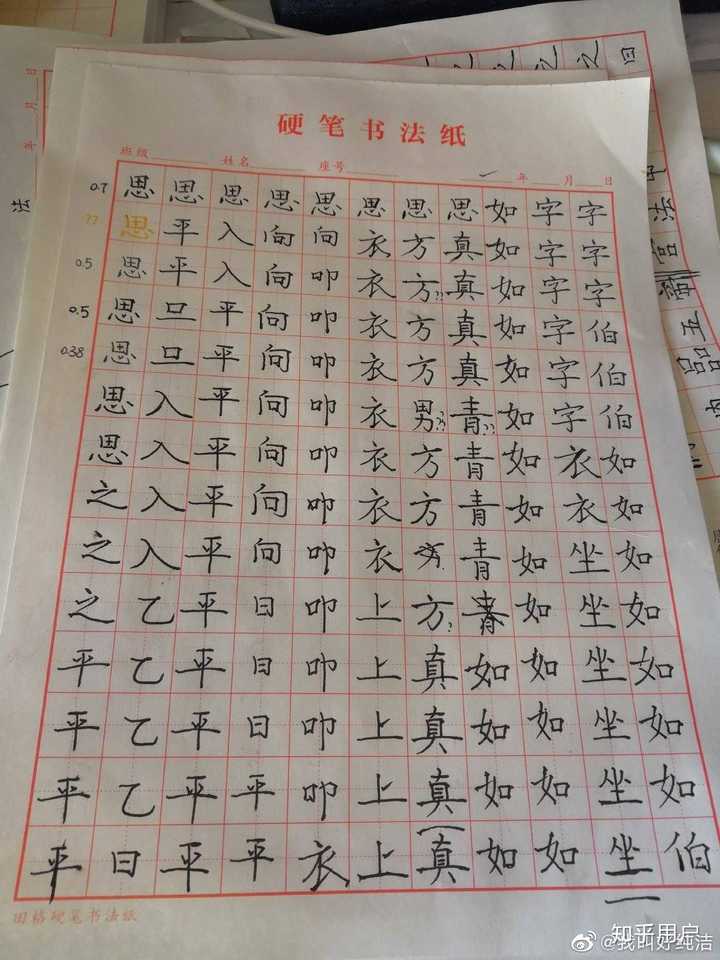 硬笔书法纸
班级 姓名 座号 年 月 日
0.7 思 思 思 思 思 思 思 思 如 字 字
思 平 入 向 向 衣 方 真 如 字 字
0.5 思 平 入 向 叩 衣 方?? 真 如 字 字
0.5 思 口 平 向 叩 衣 方 真 如 字 伯
0.38 思 口 平 向 叩 衣 方 真 如 字 伯
思 入 平 向 叩 衣 男?? 青?? 如 字 伯
思 入 平 向 叩 衣 方 青 如 衣 如
之 入 平 向 叩 衣 方 青 如 衣 如
之 入 平 向 叩 衣 青 如 坐 如
之 乙 平 日 叩 上 方? 青 如 坐 如
平 乙 平 日 叩 上 真 如 如 坐 如
平 乙 平 日 叩 上 真 如 如 坐 如
平 乙 平 平 叩 上 真 如 如 坐 如
平 日 平 平 衣 上 真 如 如 坐 伯
田格硬笔书法纸
法
回
法
宫
五
品
知乎用户
@我叫好纯洁